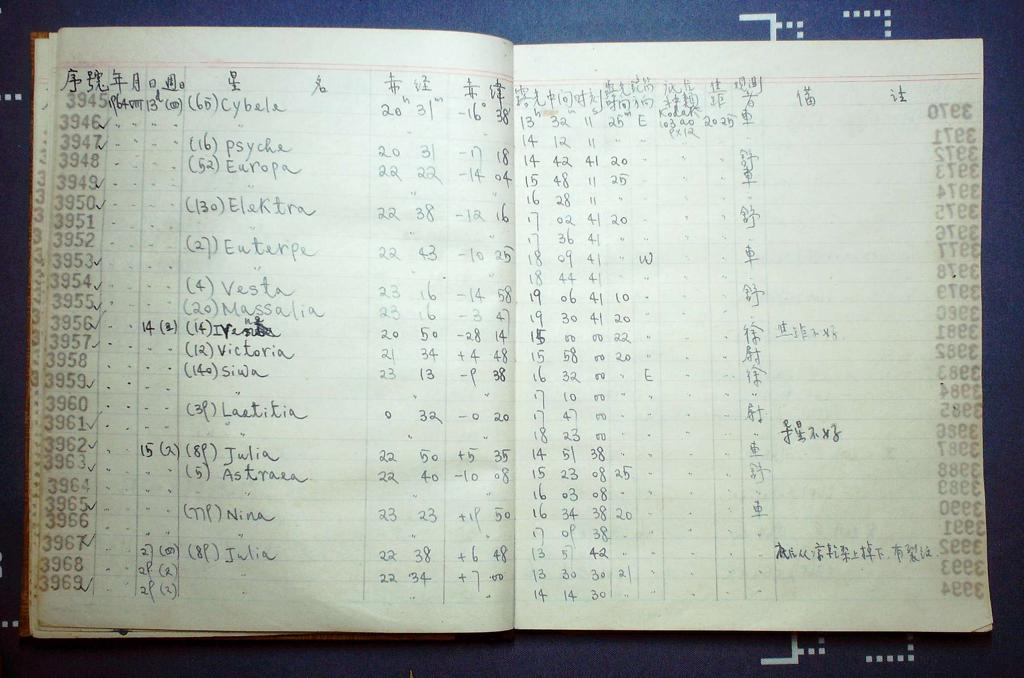 序號 年 月 日 週 星 名 赤 経 赤 緯 露光中間时刻 露光时间 底片種類 焦距 观测者 備 註
3945 13 (四) (65) Cybele 20h 31m -16° 38 13h 32m 11s 25m E Kodak 103a0 20 25 車
3946 " " " " 14 12 11 "
3947 (16) Psyche 20 31 -17 18 14 42 41 20 舒
3948 (52) Europa 22 22 -14 04 15 48 11 25 車
3949 " 16 28 11 "
3950 (130) Elektra 22 38 -12 16 17 02 41 20 舒
3951 " 17 36 41 "
3952 (27) Euterpe 22 43 -10 25 18 09 41 " W 車
3953 " 18 44 41 "
3954 (4) Vesta 23 16 -14 58 19 06 41 10 舒
3955 (20) Massalia 23 16 -3 47 19 30 41 20 "
3956 14 (14) 20 50 -28 14 15 00 00 22 徐 焦距不好
3957 (12) Victoria 21 34 +4 48 15 58 00 20 尉
3958 (140) Siwa 23 13 -9 38 16 32 00 E 徐
3959 " 17 10 00 "
3960 (39) Laetitia 0 32 -0 20 17 47 00 尉
3961 " 18 23 00 " 导星不好
3962 15 (2) (89) Julia 22 50 +5 35 14 51 38 車
3963 (5) Astraea 22 40 -10 08 15 23 08 25 舒
3964 " 16 03 08 "
3965 (779) Nina 23 23 +19 50 16 34 38 20 車
3966 " 17 09 38 "
3967 27 (89) Julia 22 38 +6 48 13 51 42 "
3968 29 (2) 22 34 +7 00 13 30 30 21
3969 29 (2) " 14 14 30 "
3970
3971
3972
3973
3974
3975
3976
3977
3978
3979
3980
3981
3982
3983
3984
3985
3986
3987
3988
3989
3990
3991
3992
3993
3994